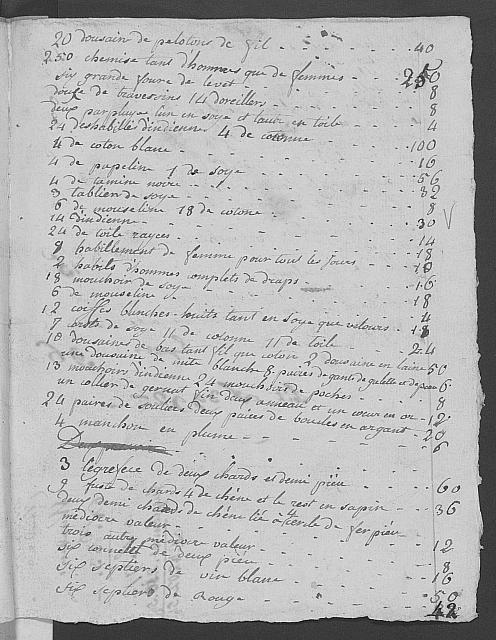 20 dousain de pelotons de fil - 40
250 chemise tant d'hommes que de femmes - 250
six grande foure de levet - 8
douse de traversins 14 doreillers - 8
deux parpluye lun en soye et lautre en toile - 4
24 deshabillés d'indienne 4 de cotonne - 100
4 de coton blanc - 16
4 de papeline 1 de soye - 56
4 de tamine noire - 32
3 tablier de soye - 8
6 de mouseline 18 de cotone - 30
14 d'indienne
24 de toile rayees - 14
8 habillement de femme pour tous les jours - 18
2 habits d'hommes complets de draps - 18
18 mouchoir de soye - 16
6 de mouseline - 18
12 coiffes blanches huits tant en soye que velours - 4
7 de soye 11 de cotonne 11 de toile - 18
18 dousaines de bas tant fil que coton 2 dousaine en laine - 24
une dousaine de mite blanche 8 paires de gants de et de peau - 50
13 mouchoirs d'indienne 24 mouchoirs de poches - 6
un colier de grenat fin deux anneau et un coeur en or - 8
24 paires de souliers deux paires de boucles en argant - 12
4 manchon en plume - 20
6
3 de deux chards et demi pieu
9 fuste de chards 4 de chene et le rest en sapin - 60
deux demi chards de chene lié a cercle de fer pieu - 36
mediocre valeur
trois autre mediocre valeur - 12
six de deux pieu - 8
six septiers de vin blanc - 16
six septiers de Rouge - 50
42